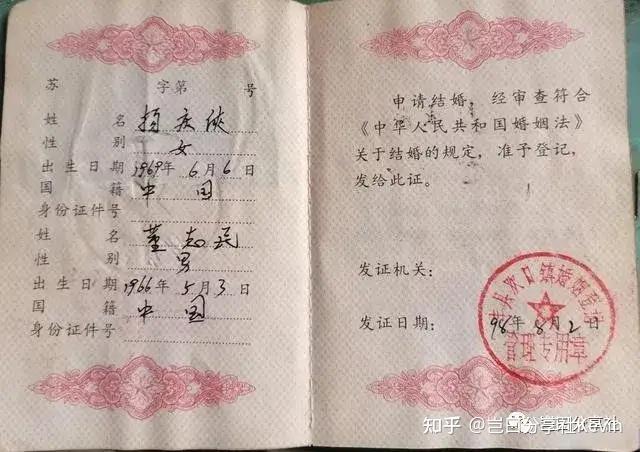 苏 字第 号
姓 名 杨庆侠
性 别 女
出生日期 1969年6月6日
国 籍 中国
身份证件号
姓 名 董志民
性 别 男
出生日期 1966年5月3日
国 籍 中国
身份证件号
申请结婚,经审查符合
《中华人民共和国婚姻法》
关于结婚的规定,准予登记,
发给此证。
发证机关:
欢口镇婚姻登记
发证日期: 98年8月2日
管理专用章
知乎